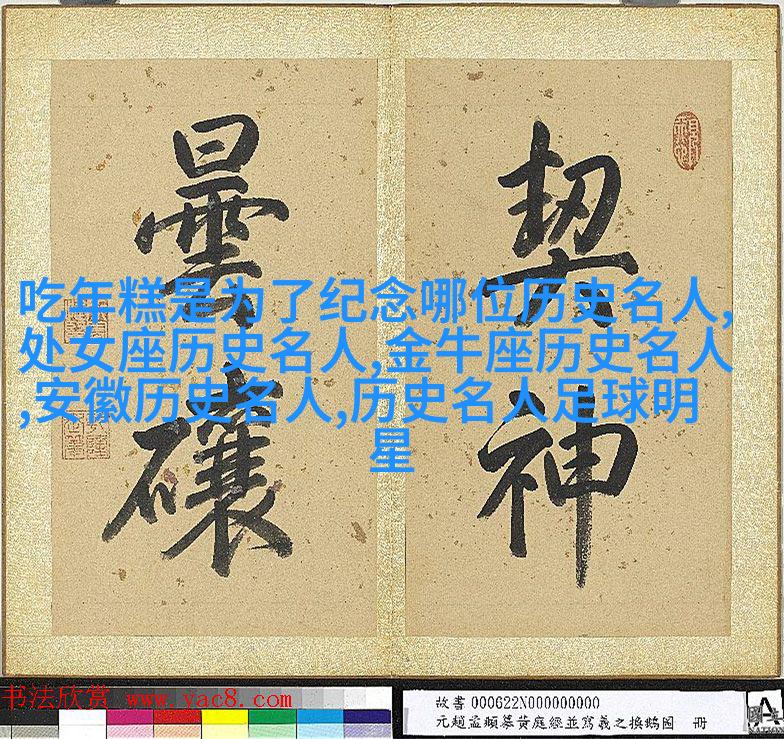 契
神
曇
吃年糕是为了纪念哪位历史名人,
处女座历史名人,金牛座历史名人
,安徽历史名人,历史名人足球明
星
书法欣赏 www.yac8.com
故書000622N000000000
元趙孟頫摹黃庭經並寫羲之換鵝圖 冊